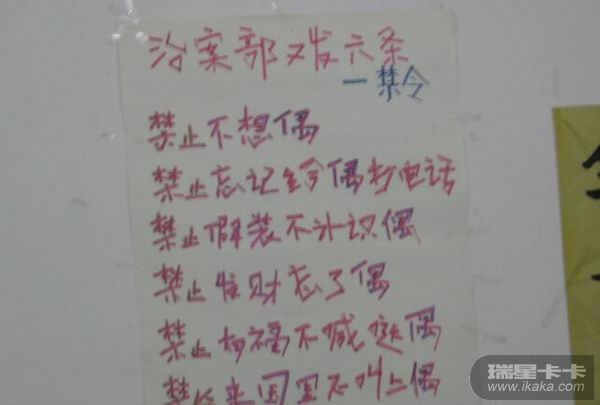 治案部又发六条
一禁令
禁止不想偶
禁止忘记给偶打电话
禁止假装不认识偶
禁止发财忘了偶
禁止有福不喊偶
禁止 不叫上偶
瑞星卡卡
www.ikaka.com